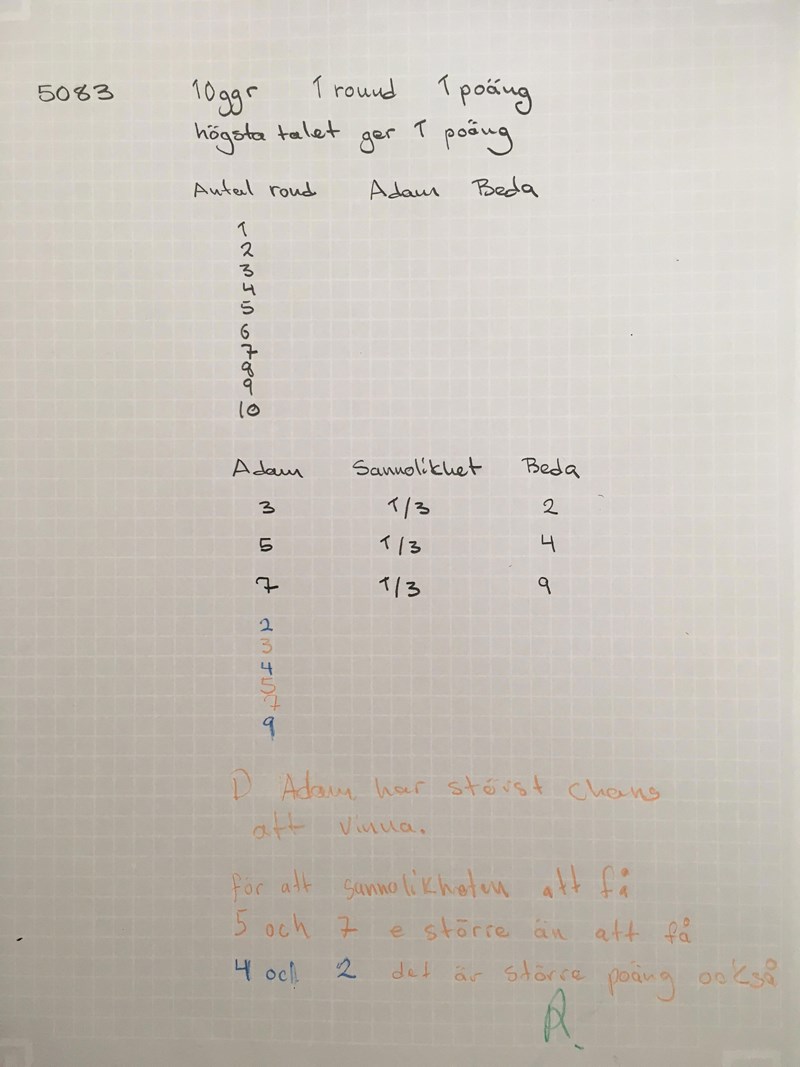 5083 10ggr 1 round 1 poäng
högsta talet ger 1 poäng
Antal rond Adam Beda
1
2
3
4
5
6
7
8
9
10
Adam Sannolikhet Beda
3 1/3 2
5 1/3 4
7 1/3 9
2
3
4
5
7
9
D Adam har störst chans
att vinna.
för att sannolikheten att få
5 och 7 e större än att få
4 och 2 det är större poäng också
R